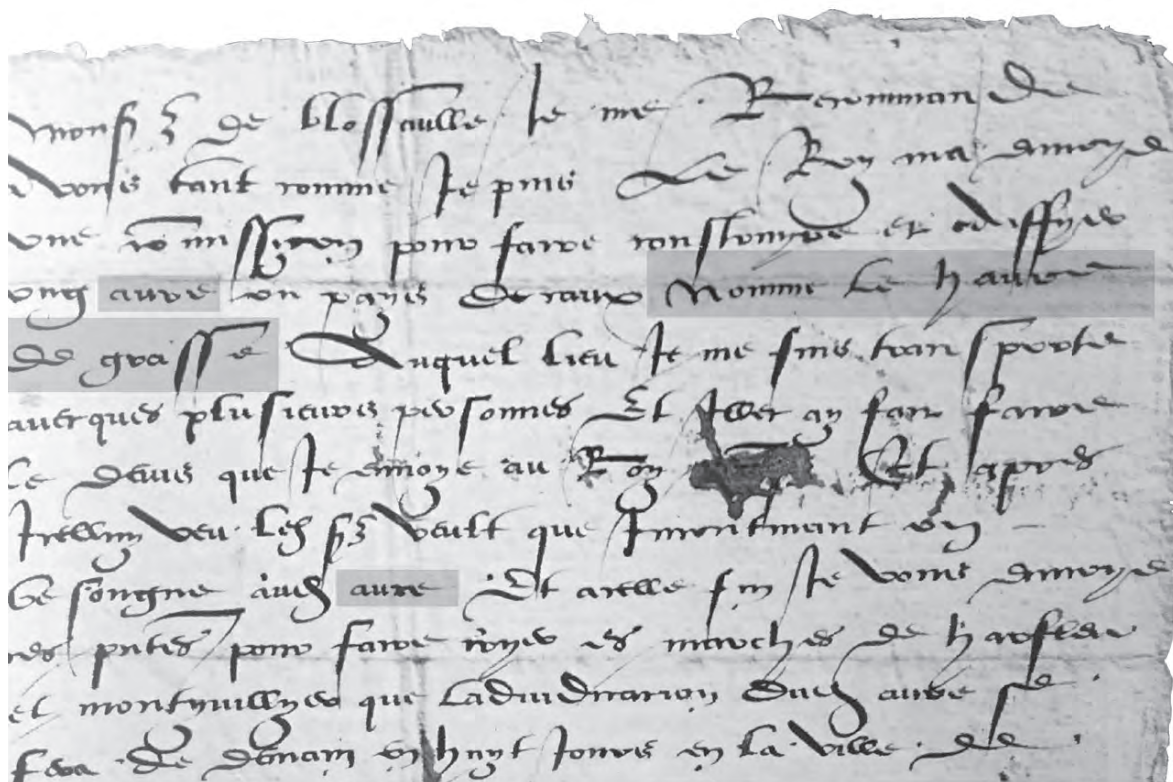 Mons^r de blossaulle Je me Recommande
A vous tant comme Je puis Le Roy ma envoye
une co(mm)ission pour faire construyre et ediffyer
ung avre en pays de caux Nomme le havre
de grasse Auquel lieu Je me suis transporte
avecques plusieurs personnes Et Illec ay fait faire
le devis que Je envoye au Roy Et apres
Icelluy veu led s^r veult que Incontinant on
besongne aud avre Et a celle fin Je vous envoye
ces p(rese)ntes pour faire cryer es marches de harfleu
et montyvillyer que ladiudicacion dud avre se
fera de demain en huyt Jours en la ville de